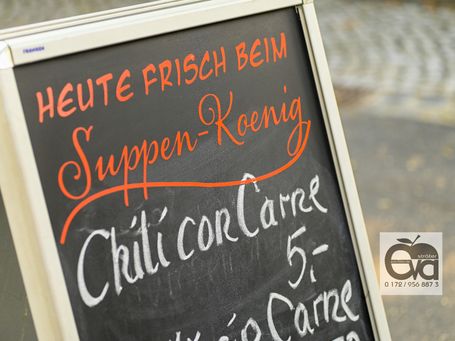 HEUTE FRISCH BEIM
Suppen-Koenig
Chili con Carne
5,-
Carne
ströbel
eva
0 172 / 956 887 3